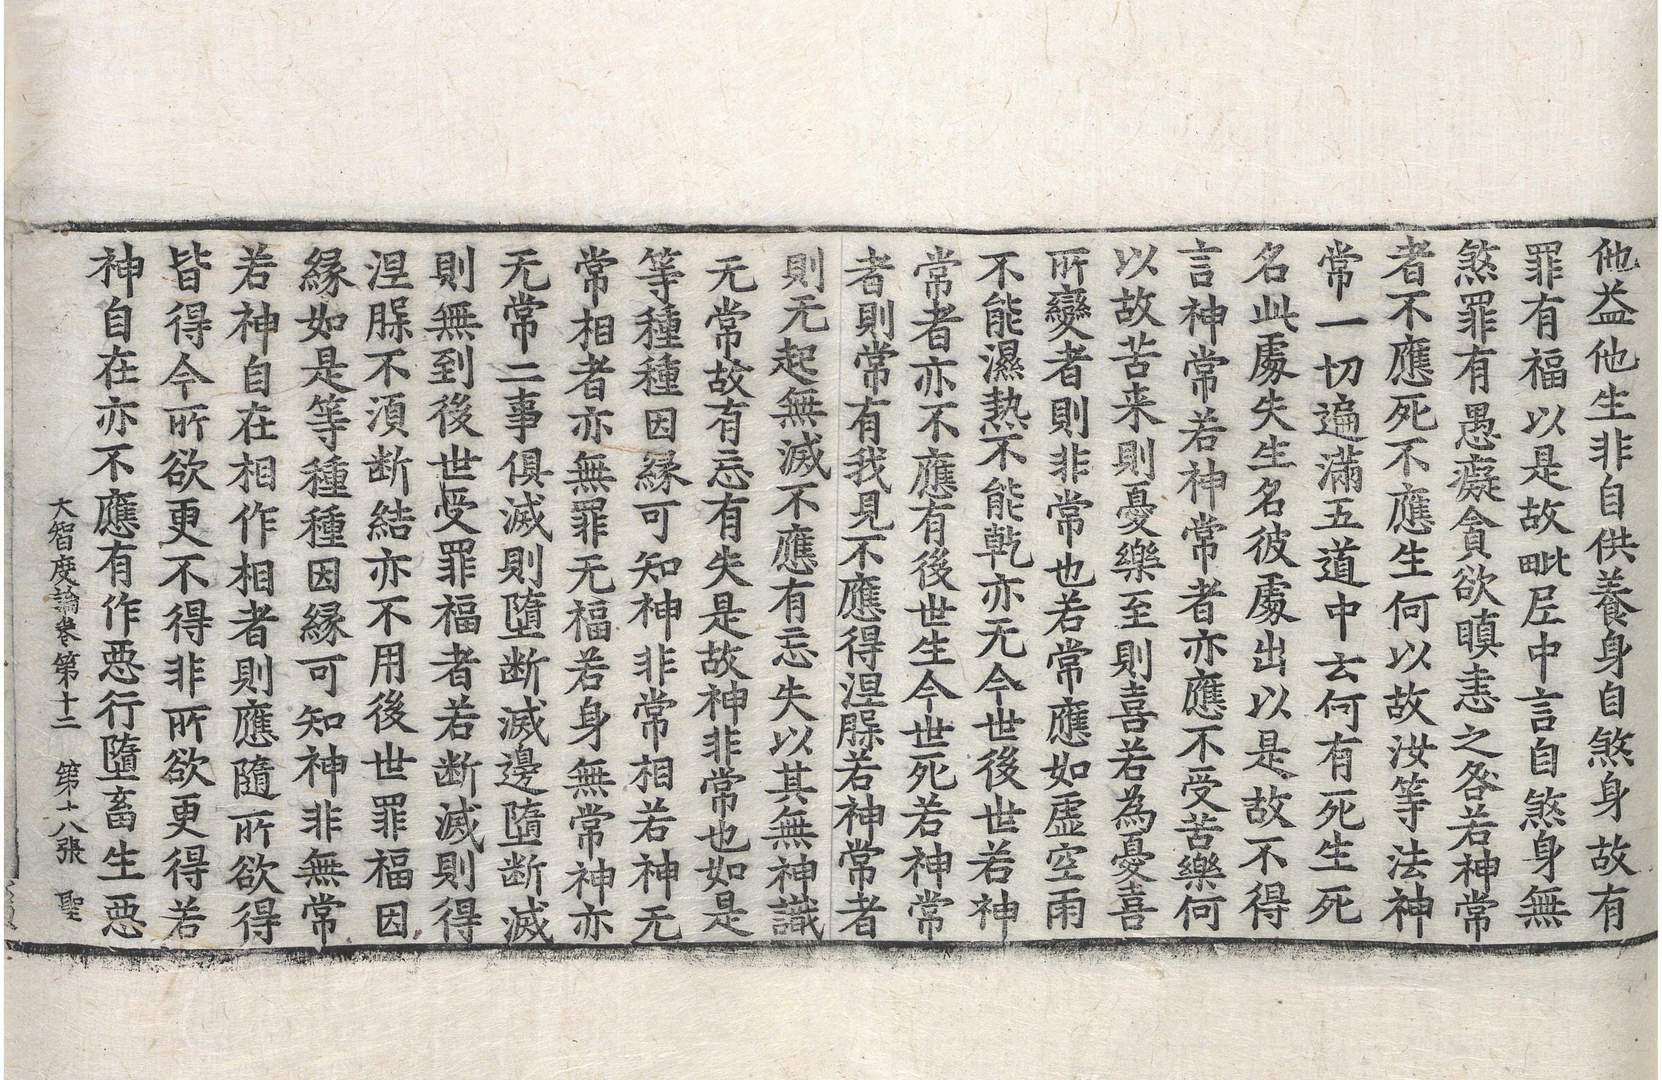 他益他生非自供養身自煞身故有
罪有福以是故毗尼中言自煞身無
煞罪有愚癡貪欲瞋恚之咎若神常
者不應死不應生何以故汝等法神
常一切遍滿五道中云何有死生死
名此處失生名彼處出以是故不得
言神常若神常者亦應不受苦樂何
以故苦来則憂樂至則喜若為憂喜
所變者則非常也若常應如虛空雨
不能濕熱不能乾亦无今世後世若神
常者亦不應有後世生今世死若神常
者則常有我見不應得涅槃若神常者
則无起無滅不應有忘失以其無神識
无常故有忘有失是故神非常也如是
等種種因縁可知神非常相若神无
常相者亦無罪无福若身無常神亦
无常二事俱滅則墮断滅邊墮断滅
則無到後世受罪福者若断滅則得
涅槃不湏断結亦不用後世罪福因
縁如是等種種因縁可知神非無常
若神自在相作相者則應隨所欲得
皆得今所欲更不得非所欲更得若
神自在亦不應有作惡行墮畜生惡
大智度論卷第十二 第十八張 聖